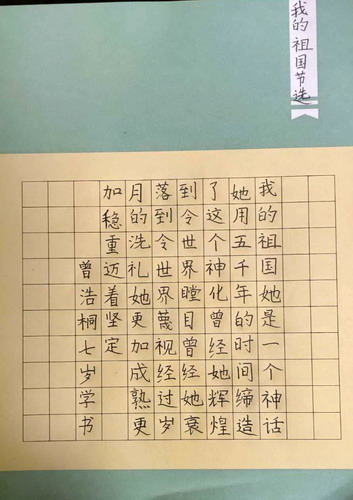 我的祖国节选
我的祖国她是一个神话
她用五千年的时间缔造
了这个神化曾经她辉煌
到令世界瞠目曾经她衰
落到令世界蔑视经过岁
月的洗礼她更加成熟更
加稳重迈着坚定
曾浩桐七岁学书